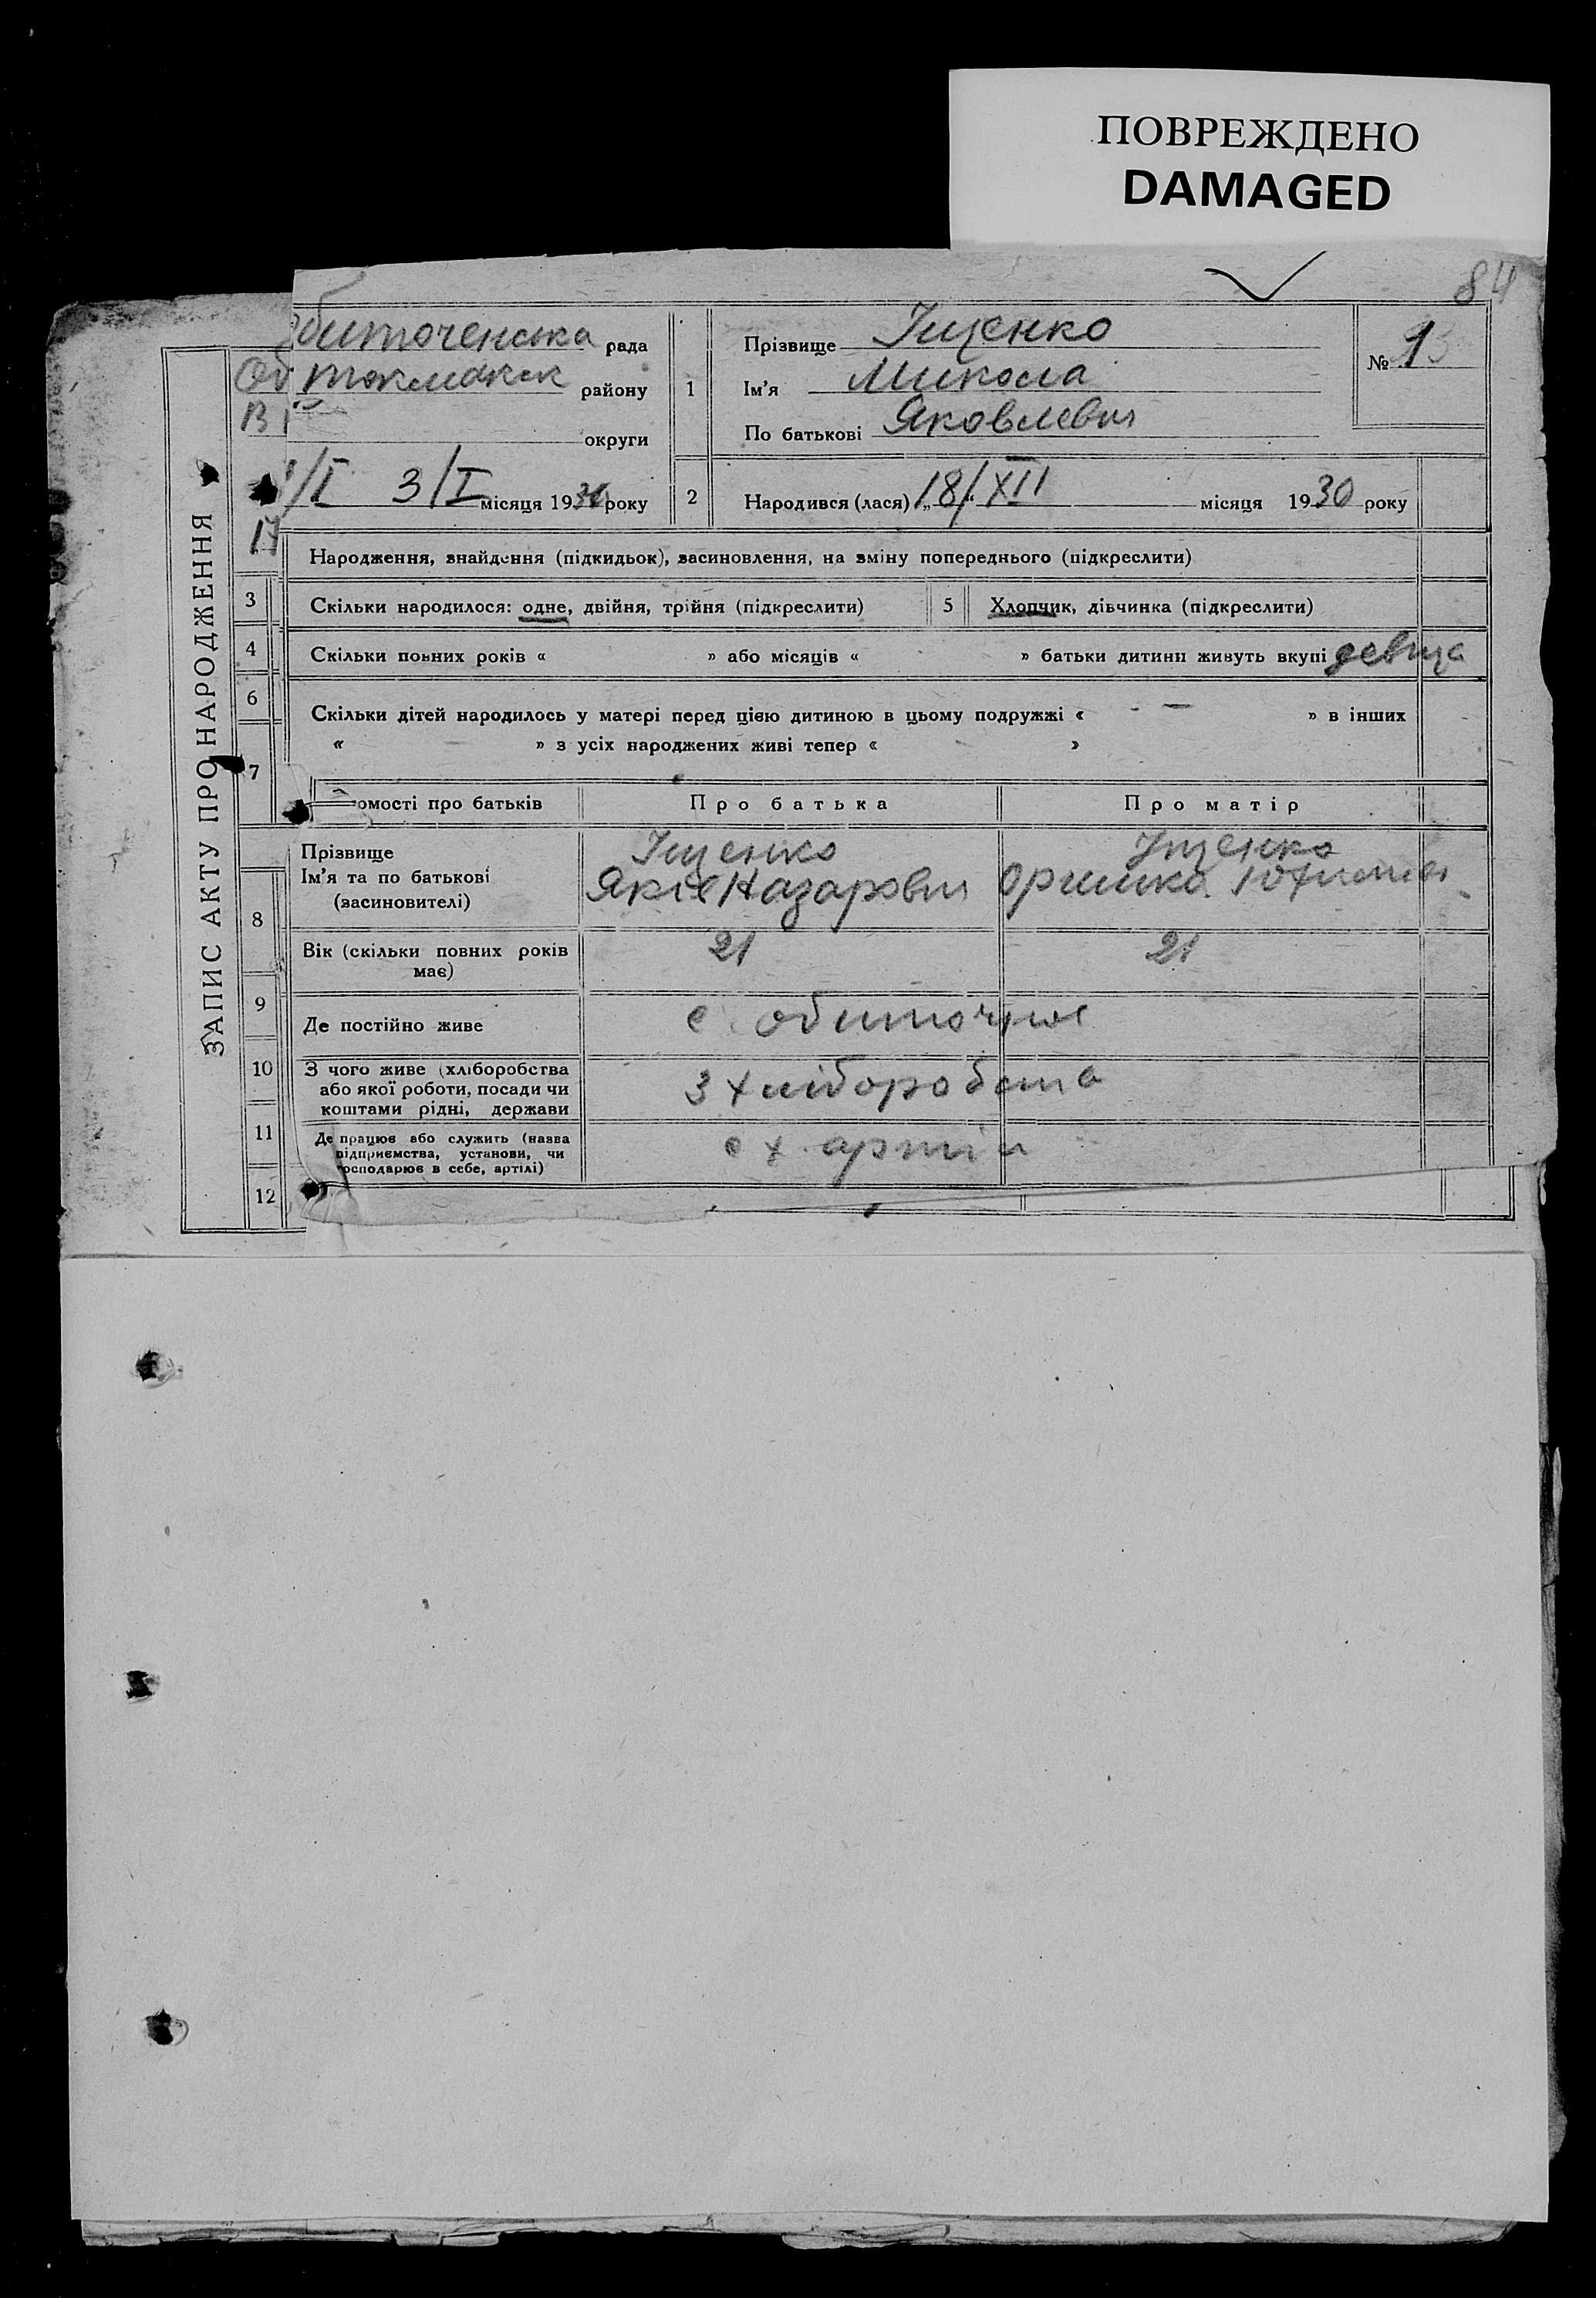 ПОВРЕЖДЕНО
DAMAGED
84
биточенська рада
Токмакск району
округи
3/I місяця 19 року
1
Прізвище Іщенко
Ім'я Микола
По батькові Яковлевич
№ 1
2
Народився (лася) „18/XII місяця 1930 року
17
ЗАПИС АКТУ ПРО НАРОДЖЕННЯ
Народження, знайдення (підкидьок), засиновлення, на зміну попереднього (підкреслити)
3
Скільки народилося: одне, двійня, трійня (підкреслити)
5
Хлопчик, дівчинка (підкреслити)
4
Скільки повних років « » або місяців « » батьки дитини живуть вкупі
6
Скільки дітей народилось у матері перед цією дитиною в цьому подружжі « — » в інших
« » з усіх народжених живі тепер « »
7
омості про батьків
Про батька
Про матір
8
Прізвище
Ім'я та по батькові
(засиновителі)
Іщенко
Іщенко
Яків Назарович
Оришка
Вік (скільки повних років
має)
21
21
9
Де постійно живе
с обиточне
10
З чого живе (хліборобства
або якої роботи, посади чи
коштами рідні, держави
З хліборобства
11
Де працює або служить (назва
підприємства, установи, чи
осподарює в себе, артілі)
с х артіл
12